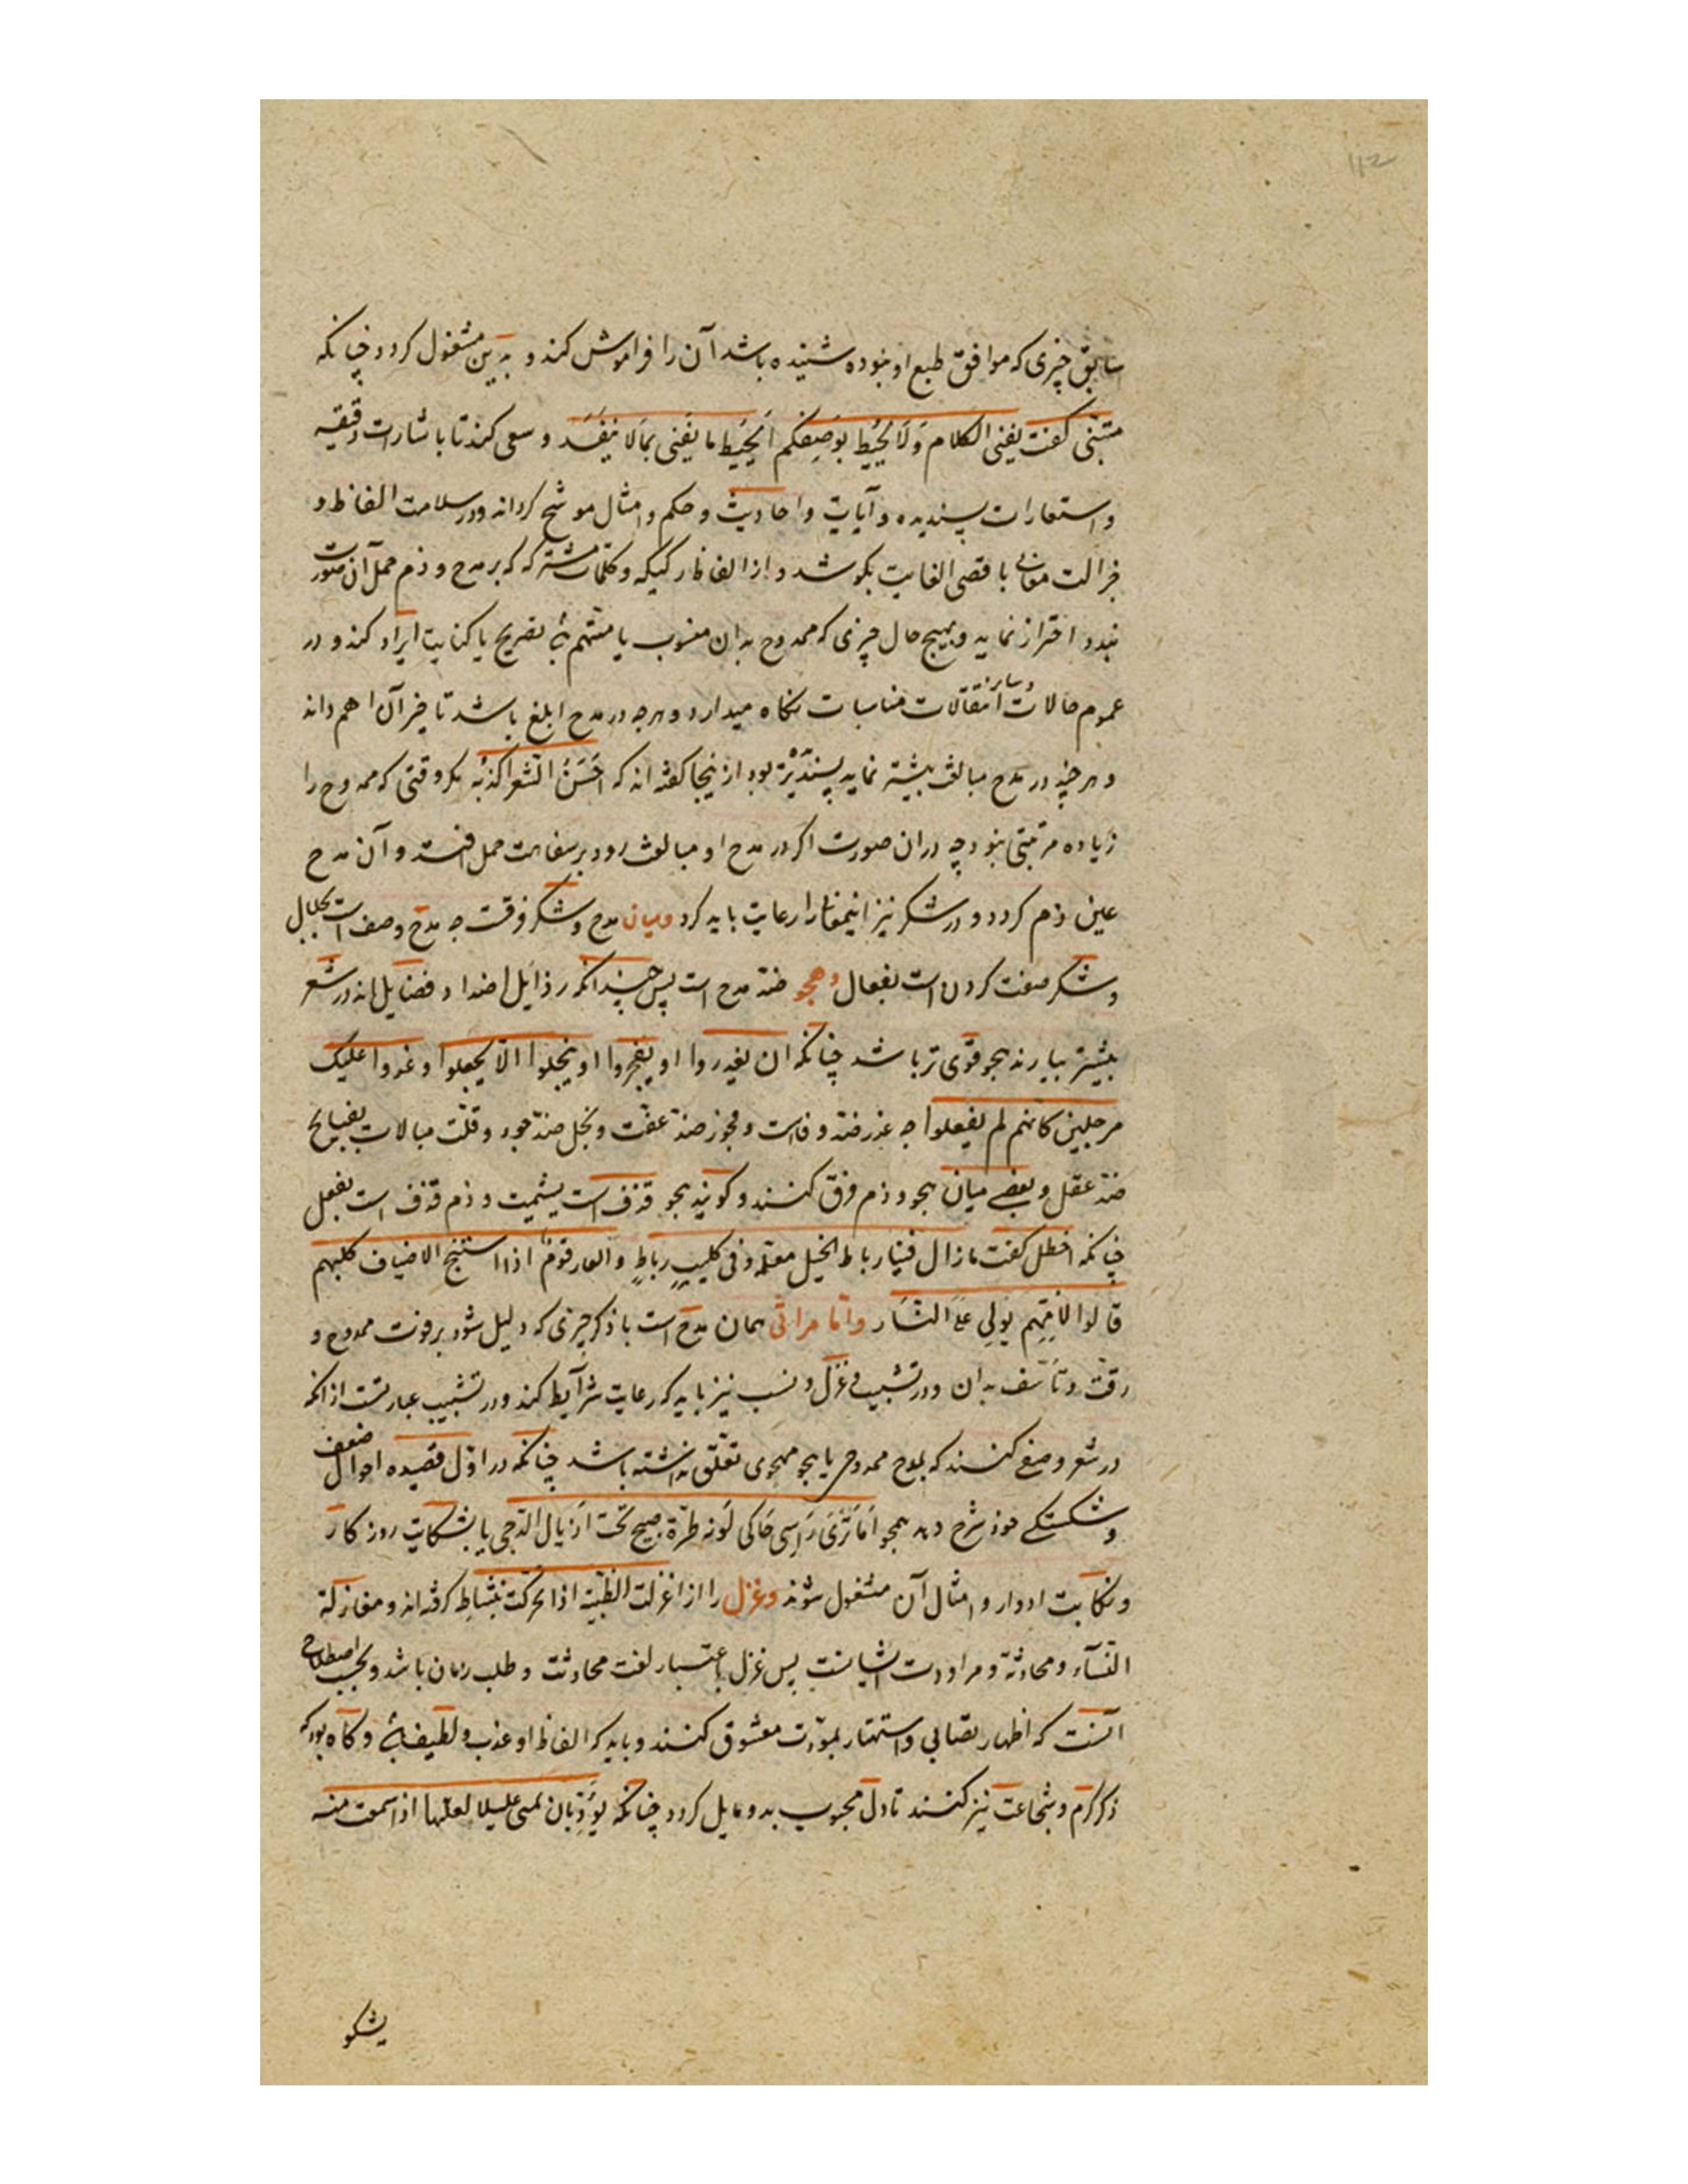 سابق چیزی که موافق طبع او نبوده شنیده باشد آن را فراموش کند و بدین مشغول کردد چنانکه
متنبی کفت یفنی الکلام وَلَا یُحیُط بوَصِفِکُم اَیُحیُط ما یَفَنی بمَالا یَنفَد و سعی کند تا باشارات دقیقه
و استعارات پسندیده و آیات و احادیث و حکم و امثال موشح کرداند و در سلامت الفاظ و
جزالت معانی باقصی الغایت بکوشد و از الفاظ رکیکه و کلمات مشترکه که بر مدح و ذم حمل آن صورت
بندد احتراز نماید و بهیچ حال چیزی که ممدوح بدان منسوب یا متهم بتصریح یا کنایت ایراد کند و در
عموم حالات و سایر انتقالات مناسبات نکاه میدارد و هرچه در مدح ابلغ باشد تاخیر آن اهم داند
و هرچند در مدح مبالغت بیشتر نماید پسندیده‌تر بود از ینجا کفته اند که اَحَسَنُ الشعر اکذبُه مکر وقتی که ممدوح را
زیاده مرتبتی نبود چه دران صورت اکر در مدح او مبالغت رود بر سفاهت حمل افتد و آن مدح
عین ذم کردد و در شکر نیز اینمعنی را رعایت باید کرد و میان مدح و شکر فرقست چه مدح وصف است بکمال
و شکر صفت کردن است بفعال و هجو ضد مدح است پس چندانکه رذایل اضداد فضایل اند در شعر
بیشتر بیارند هجو قوی تر باشد چنانکه ان یغدروا او یفجروا او یبخلوا الّا یحفلوا و غدوا علیک
مرجلین کانهم لم یفعلوا چه غدر ضد وفاست و فجور ضد عفت و بخل ضد جود و قلت مبالات بقبایح
ضد عقل و بعضی میان هجو و ذم فرق کنند و کویند هجو قذف است بشمیت و ذم قذف است بفعل
چنانکه اخطل کفت مازال فینا رباط الخیل معلمه و فی کلیب رباط و العار قوم اذا استنبح الاضیاف کلبهم
قالوا لاُمِهِم بُولِی عَلَی النَّار و اما مراثی همان مدح است با ذکر چیزی که دلیل شود بر فوت ممدوح و
رقت و تأسف بدان و در تشبیب و غزل و نسب نیز باید که رعایت شرایط کند و در تشبیب عبارتست ازانکه
در شعر وصفی کنند که بمدح ممدوحی یا بهجو مهجوی تعلق نداشته باشد چنانکه در اول قصیده احوال ضعف
و شکستکی خود شرح دهد همچو اَمَا تَرَی رَاسِی حَاکی لَونه طرّة صبح تحت اذیال الدّجی یا بشکایت روزکار
و نکایت ادوار و امثال آن مشغول شوند و غزل را از اغزلت الظبیة اذا تحرکت بنشاط کرفته اند و مغازلة
النساء و محادثة و مراودت ایشانست پس غزل باعتبار لغت محادثت و طلب زمان باشد و بحسب اصطلاح
آنست که اظهار تصابی و استهتار بمودت معشوق کنند و باید که الفاظ او عذب و لطیف و کاه بود که
ذکر کرم و شجاعت نیز کنند تا دل محبوب بدو مایل کردد چنانکه یَوُدّ بان یمسی علیلا لعلها اذا سمعت منه
یشکو